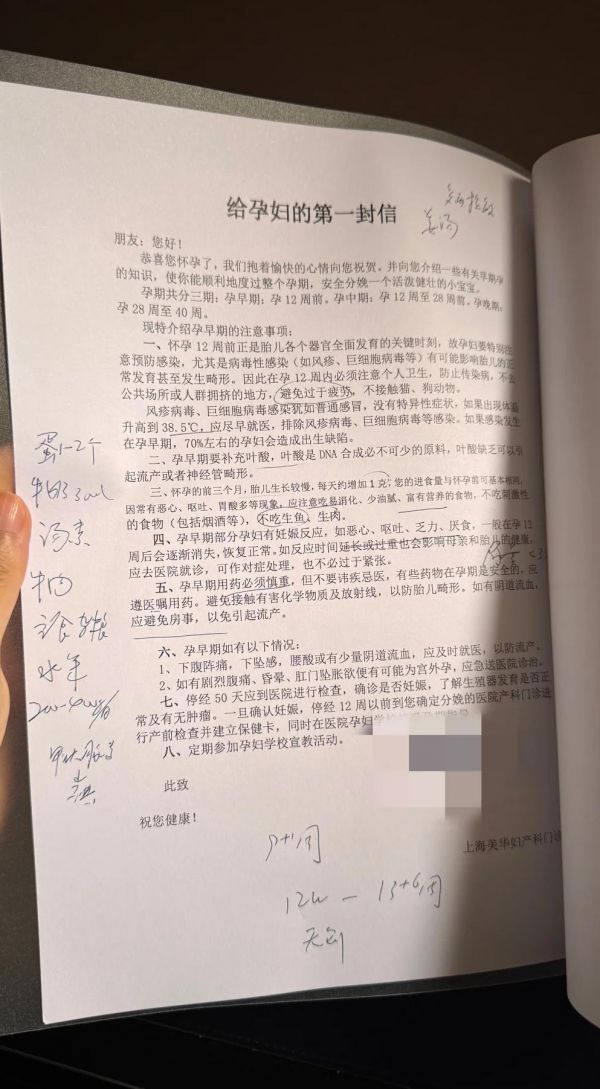 给孕妇的第一封信
姜汤
朋友：您好！
恭喜您怀孕了，我们抱着愉快的心情向您祝贺。并向您介绍一些有关早期孕
的知识，使你能顺利地度过整个孕期，安全分娩一个活泼健壮的小宝宝。
孕期共分三期：孕早期：孕 12 周前。孕中期：孕 12 周至 28 周前。孕晚期：
孕 28 周至 40 周。
现特介绍孕早期的注意事项：
一、怀孕 12 周前正是胎儿各个器官全面发育的关键时刻，故孕妇要特别注
意预防感染，尤其是病毒性感染（如风疹、巨细胞病毒等）有可能影响胎儿的正
常发育甚至发生畸形。因此在孕 12 周内必须注意个人卫生，防止传染病，不去
公共场所或人群拥挤的地方，避免过于疲劳，不接触猫、狗动物。
风疹病毒、巨细胞病毒感染犹如普通感冒，没有特异性症状，如果出现体温
升高到 38.5℃，应尽早就医，排除风疹病毒、巨细胞病毒感染等。如果感染发生
在孕早期，70%左右的孕妇会造成出生缺陷。
二、孕早期要补充叶酸，叶酸是 DNA 合成必不可少的原料，叶酸缺乏可以引
起流产或者神经管畸形。
三、怀孕的前三个月，胎儿生长较慢，每天约增加 1 克；您的进食量与怀孕前可基本相同，
因常有恶心、呕吐、胃酸多等现象，应注意吃易消化、少油腻、富有营养的食物，不吃刺激性
的食物（包括烟酒等），不吃生鱼、生肉。
四、孕早期部分孕妇有妊娠反应，如恶心、呕吐、乏力、厌食，一般在孕 12
周后会逐渐消失，恢复正常。如反应时间延长或过重也会影响母亲和胎儿的健康，
应去医院就诊，可作对症处理，也不必过于紧张。
五、孕早期用药必须慎重，但不要讳疾忌医，有些药物在孕期是安全的，应
遵医嘱用药。避免接触有害化学物质及放射线，以防胎儿畸形。如有阴道流血，
应避免房事，以免引起流产。
六、孕早期如有以下情况：
1、下腹阵痛，下坠感，腰酸或有少量阴道流血，应及时就医，以防流产。
2、如有剧烈腹痛、昏晕、肛门坠胀欲便有可能为宫外孕，应急送医院诊治。
七、停经 50 天应到医院进行检查，确诊是否妊娠，了解生殖器发育是否正
常及有无肿瘤。一旦确认妊娠，停经 12 周以前到您确定分娩的医院产科门诊进
行产前检查并建立保健卡，同时在医院孕妇学校
八、定期参加孕妇学校宣教活动。
此致
祝您健康！
上海美华妇产科门诊
蛋1-2个
主食
水果
9+1周
12w — 13+6周